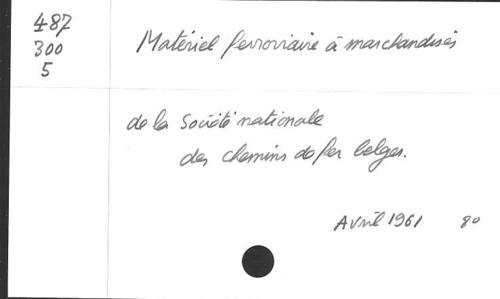 487
300
5
Matériel ferroviaire à marchandises
de la Société nationale
des chemins de fer belges.
Avril 1961 8°